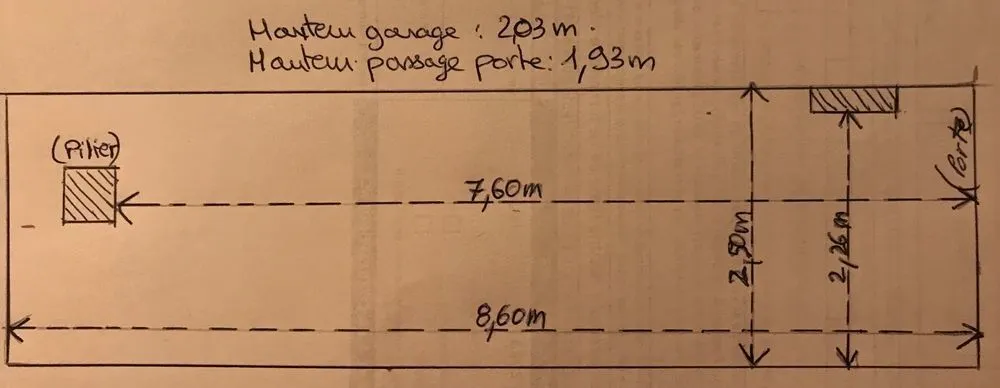 Hauteur garage : 2,03 m.
Hauteur passage porte : 1,93 m
(Pilier)
(Porte)
7,60 m
2,50 m
2,26 m
8,60 m